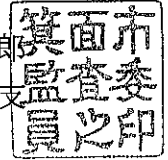 郎
箕面市
監査委
員之印